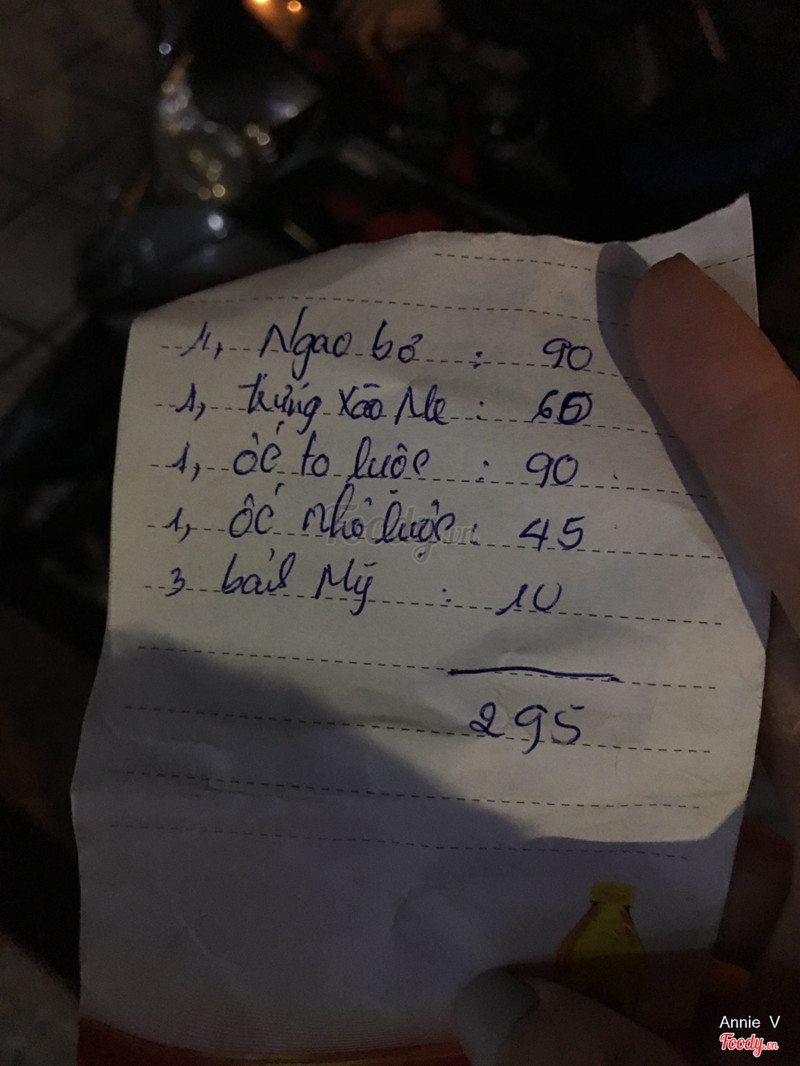 1, Ngao bơ : 90
1, trứng xào Me : 60
1, ốc to luộc : 90
1, ốc nhỏ luộc : 45
3 bánh Mỳ : 10
295
Foody.vn
Annie V
Foody.vn